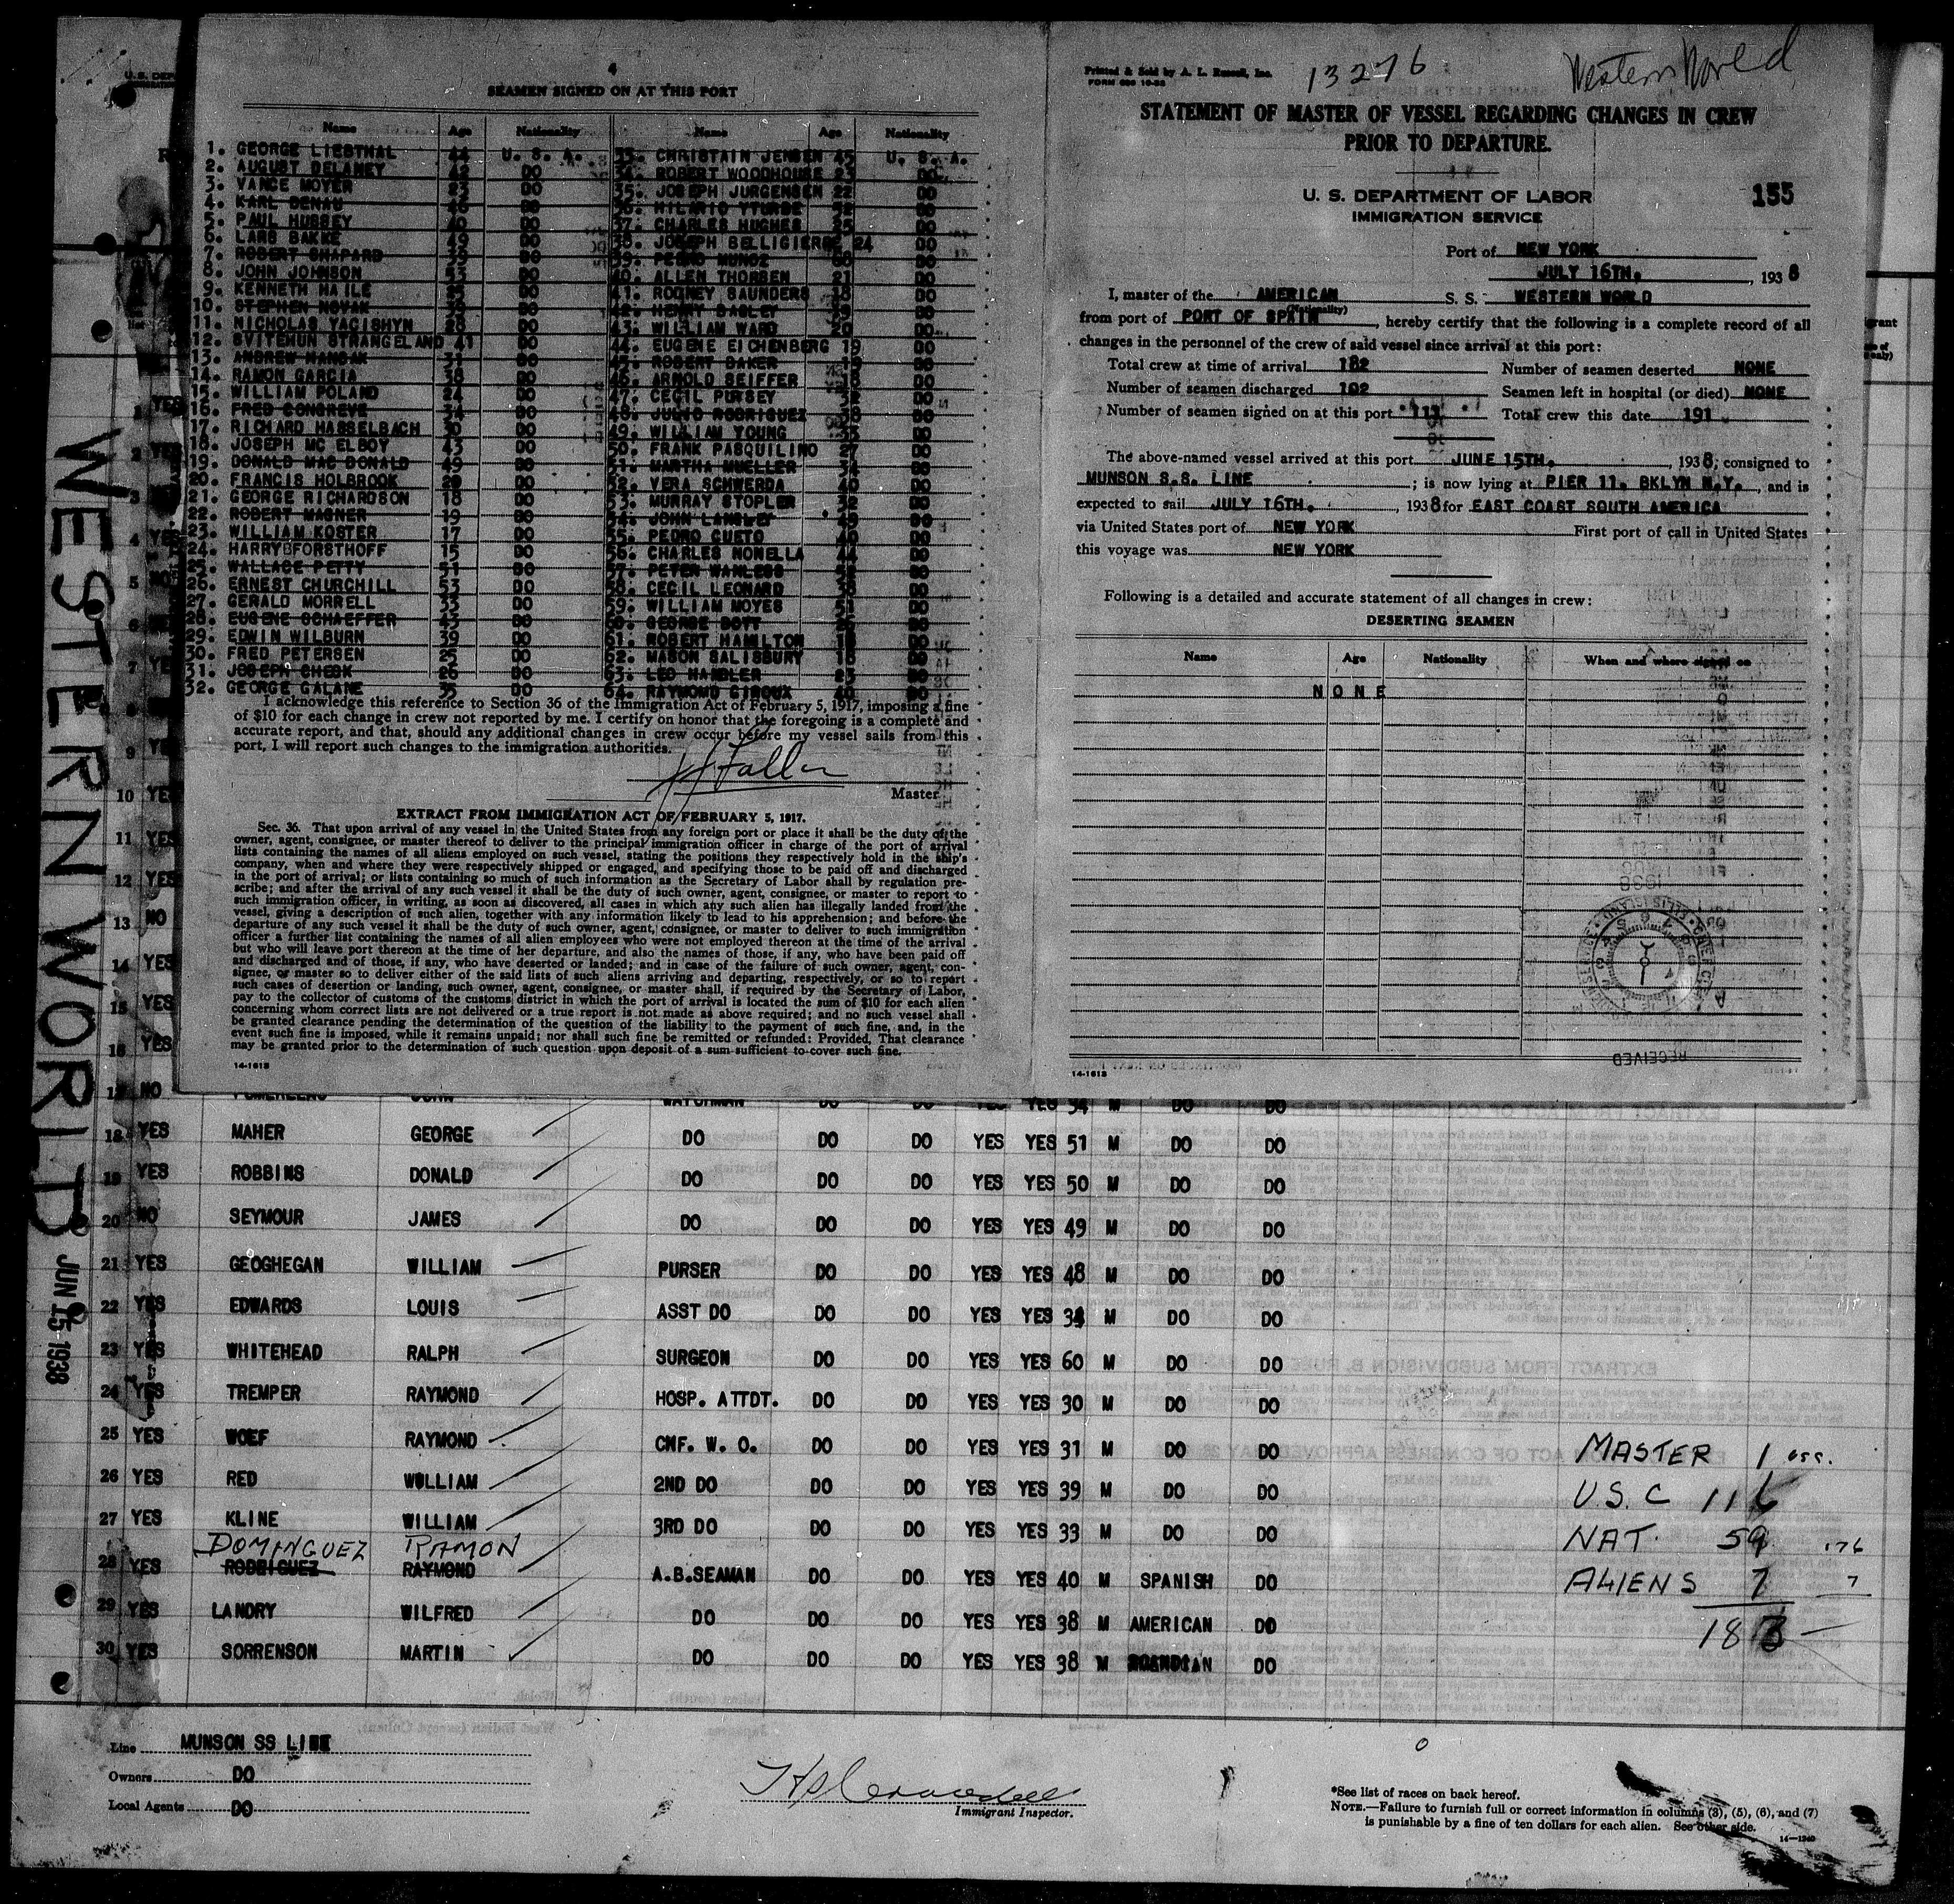 4
SEAMEN SIGNED ON AT THIS PORT
Name Age Nationality Name Age Nationality
1. GEORGE LIESTHAL 44 U. S. A. 33. CHRISTAIN JENSEN 45 U. S. A.
2. AUGUST DELANEY 42 DO 34. ROBERT WOODHOUSE 23 DO
3. VANCE MOYER 23 DO 35. JOSEPH JURGENSEN 22 DO
4. KARL DENAU 46 DO 36. HILARIO YTURBE DO
5. PAUL HUSSEY 40 DO 37. CHARLES HUGHES 25 DO
6. LARS BAKKE 49 DO 38. JOSEPH BELLIGIERE 24 DO
7. ROBERT SHAPARD 39 DO 39. PEDRO MUNOZ DO
8. JOHN JOHNSON 53 DO 40. ALLEN THORSEN 21 DO
9. KENNETH HAILE 25 DO 41. RODNEY SAUNDERS 18 DO
10. STEPHEN NOVAK DO 42. HENRY BAGLEY DO
11. NICHOLAS YACISHYN 28 DO 43. WILLIAM WARD 20 DO
12. SVITEHUN STRANGELAND 41 DO 44. EUGENE EICHENBERG 19 DO
13. ANDREW HANDAK 31 DO 45. ROBERT BAKER DO
14. RAMON GARCIA 38 DO 46. ARNOLD SEIFFER DO
15. WILLIAM POLAND 24 DO 47. CECIL PURSEY 32 DO
16. FRED CONGREVE 34 DO 48. JULIO RODRIGUEZ 38 DO
17. RICHARD HASSELBACH 30 DO 49. WILLIAM YOUNG 33 DO
18. JOSEPH MC ELBOY 43 DO 50. FRANK PASQUILINO 27 DO
19. DONALD MAC DONALD 49 DO 51. MARTHA MUELLER 34 DO
20. FRANCIS HOLBROOK 20 DO 52. VERA SCHWERDA 40 DO
21. GEORGE RICHARDSON 18 DO 53. MURRAY STOPLER 32 DO
22. ROBERT MAGNER 19 DO 54. JOHN LANGLEY 49 DO
23. WILLIAM KOSTER 17 DO 55. PEDRO CUETO 40 DO
24. HARRY FORSTHOFF 15 DO 56. CHARLES NONELLA 44 DO
25. WALLACE PETTY 51 DO 57. PETER WANLESS DO
26. ERNEST CHURCHILL 53 DO 58. CECIL LEONARD 38 DO
27. GERALD MORRELL 35 DO 59. WILLIAM MOYES 51 DO
28. EUGENE SCHAEFFER 43 DO 60. GEORGE BOTT DO
29. EDWIN WILBURN 39 DO 61. ROBERT HAMILTON 18 DO
30. FRED PETERSEN 25 DO 62. MASON SALISBURY 18 DO
31. JOSEPH CHECK 26 DO 63. LEO HANDLER 23 DO
32. GEORGE GALANE 35 DO 64. RAYMOND GIROUX 40 DO
I acknowledge this reference to Section 36 of the Immigration Act of February 5, 1917, imposing a fine
of $10 for each change in crew not reported by me. I certify on honor that the foregoing is a complete and
accurate report, and that, should any additional changes in crew occur before my vessel sails from this
port, I will report such changes to the immigration authorities.
Master
EXTRACT FROM IMMIGRATION ACT OF FEBRUARY 5, 1917.
Sec. 36. That upon arrival of any vessel in the United States from any foreign port or place it shall be the duty of the
owner, agent, consignee, or master thereof to deliver to the principal immigration officer in charge of the port of arrival
lists containing the names of all aliens employed on such vessel, stating the positions they respectively hold in the ship's
company, when and where they were respectively shipped or engaged, and specifying those to be paid off and discharged
in the port of arrival; or lists containing so much of such information as the Secretary of Labor shall by regulation pre-
scribe; and after the arrival of any such vessel it shall be the duty of such owner, agent, consignee, or master to report to
such immigration officer, in writing, as soon as discovered, all cases in which any such alien has illegally landed from the
vessel, giving a description of such alien, together with any information likely to lead to his apprehension; and before the
departure of any such vessel it shall be the duty of such owner, agent, consignee, or master to deliver to such immigration
officer a further list containing the names of all alien employees who were not employed thereon at the time of the arrival
but who will leave port thereon at the time of her departure, and also the names of those, if any, who have been paid off
and discharged and of those, if any, who have deserted or landed; and in case of the failure of such owner, agent, con-
signee, or master so to deliver either of the said lists of such aliens arriving and departing, respectively, or so to report
such cases of desertion or landing, such owner, agent, consignee, or master shall, if required by the Secretary of Labor,
pay to the collector of customs of the customs district in which the port of arrival is located the sum of $10 for each alien
concerning whom correct lists are not delivered or a true report is not made as above required; and no such vessel shall
be granted clearance pending the determination of the question of the liability to the payment of such fine, and, in the
event such fine is imposed, while it remains unpaid; nor shall such fine be remitted or refunded: Provided, That clearance
may be granted prior to the determination of such question upon deposit of a sum sufficient to cover such fine.
14-1613
Printed & Sold by A. L. Russell, Inc.
13276 Western World
STATEMENT OF MASTER OF VESSEL REGARDING CHANGES IN CREW
PRIOR TO DEPARTURE.
U. S. DEPARTMENT OF LABOR
IMMIGRATION SERVICE
155
Port of NEW YORK
JULY 16TH. , 1938
I, master of the AMERICAN S. S. WESTERN WORLD
(Nationality)
from port of PORT OF SPAIN , hereby certify that the following is a complete record of all
changes in the personnel of the crew of said vessel since arrival at this port:
Total crew at time of arrival 182 Number of seamen deserted NONE
Number of seamen discharged 102 Seamen left in hospital (or died) NONE
Number of seamen signed on at this port 111 Total crew this date 191
The above-named vessel arrived at this port JUNE 15TH. , 1938; consigned to
MUNSON S.S. LINE ; is now lying at PIER 11. BKLYN N.Y. , and is
expected to sail JULY 16TH. , 1938 for EAST COAST SOUTH AMERICA
via United States port of NEW YORK First port of call in United States
this voyage was NEW YORK
Following is a detailed and accurate statement of all changes in crew:
DESERTING SEAMEN
Name Age Nationality When and where signed on
NONE
14-1613
WESTERN WORLD
JUN 15 1938
18 YES MAHER GEORGE DO DO DO YES YES 51 M DO DO
19 YES ROBBINS DONALD DO DO DO YES YES 50 M DO DO
20 NO SEYMOUR JAMES DO DO DO YES YES 49 M DO DO
21 YES GEOGHEGAN WILLIAM PURSER DO DO YES YES 48 M DO DO
22 YES EDWARDS LOUIS ASST DO DO DO YES YES 34 M DO DO
23 YES WHITEHEAD RALPH SURGEON DO DO YES YES 60 M DO DO
24 YES TREMPER RAYMOND HOSP. ATTDT. DO DO YES YES 30 M DO DO
25 YES WOEF RAYMOND CNF. W. O. DO DO YES YES 31 M DO DO
26 YES RED WOLLIAM 2ND DO DO DO YES YES 39 M DO DO
27 YES KLINE WILLIAM 3RD DO DO DO YES YES 33 M DO DO
DOMINGUEZ RAMON
28 YES RODRIGUEZ RAYMOND A.B.SEAMAN DO DO YES YES 40 M SPANISH DO
29 YES LANDRY WILFRED DO DO DO YES YES 38 M AMERICAN DO
30 YES SORRENSON MARTIN DO DO DO YES YES 38 M DO
MASTER 1
U.S.C 116
NAT. 59 176
ALIENS 7 7
183
Line MUNSON SS LINE
Owners DO
Local Agents DO
Immigrant Inspector.
*See list of races on back hereof.
NOTE.—Failure to furnish full or correct information in columns (3), (5), (6), and (7)
is punishable by a fine of ten dollars for each alien. See other side.
14—1240